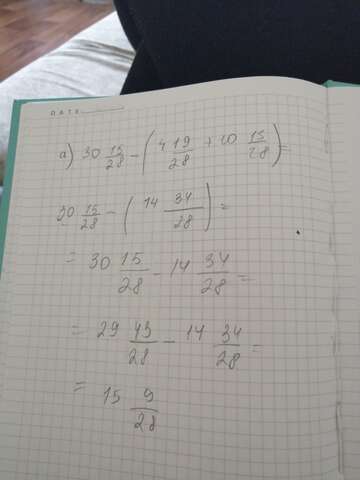 DATE
a) 30 15/28 - (4 19/28 + 10 15/28) =
30 15/28 - (14 34/28) =
= 30 15/28 - 14 34/28 =
= 29 43/28 - 14 34/28 =
= 15 9/28